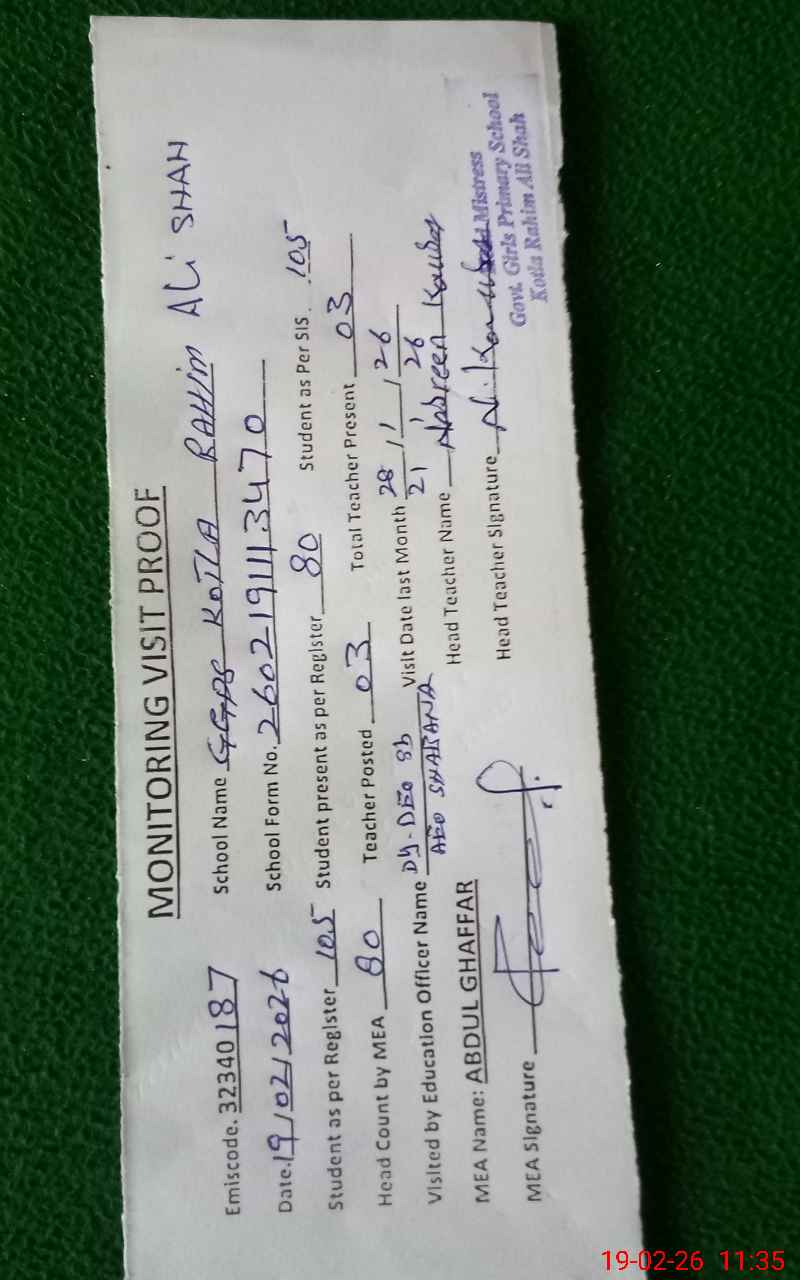 MONITORING VISIT PROOF
Emiscode. 32340187 School Name GGPS KOTLA RAHIM ALi SHAH
Date. 19/02/2026 School Form No. 26021911113470
Student as per Register 105 Student present as per Register 80 Student as Per SIS. 105
Head Count by MEA 80 Teacher Posted 03 Total Teacher Present 03
Visited by Education Officer Name Dy-DEO Visit Date last Month 28/1/26
AEO 21/26
MEA Name: ABDUL GHAFFAR Head Teacher Name Nasreen Kousar
MEA Signature Head Teacher Signature
Mistress
Govt. Girls Primary School
Kotla Rahim Ali Shah
19-02-26 11:35